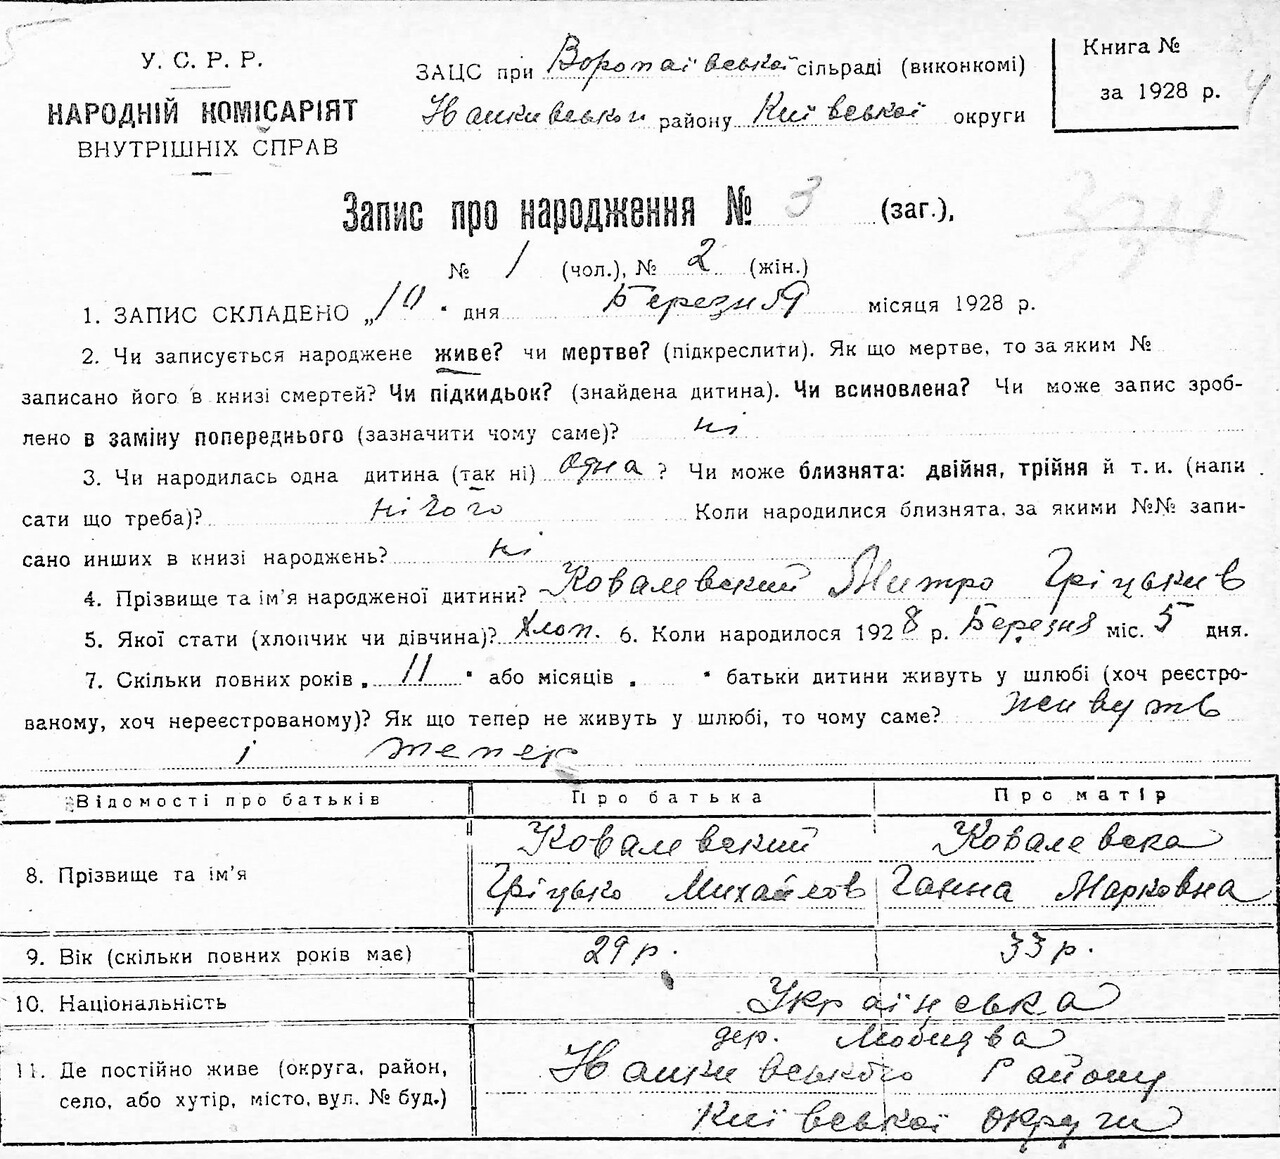 У. С. Р. Р.
НАРОДНІЙ КОМІСАРІЯТ
ВНУТРІШНІХ СПРАВ
ЗАЦС при Воропаївської сільраді (виконкомі)
району Київської округи
Книга №
за 1928 р. 4
Запис про народження № 3 (заг.),
№ 1 (чол.), № 2 (жін.)
1. ЗАПИС СКЛАДЕНО „10" дня Березня місяця 1928 р.
2. Чи записується народжене живе? чи мертве? (підкреслити). Як що мертве, то за яким №
записано його в книзі смертей? Чи підкидьок? (знайдена дитина). Чи всиновлена? Чи може запис зроб-
лено в заміну попереднього (зазначити чому саме)? ні
3. Чи народилась одна дитина (так ні) одна? Чи може близнята: двійня, трійня й т. и. (напи
сати що треба)? нічого Коли народилися близнята, за якими №№ запи-
сано инших в книзі народжень? ні
4. Прізвище та ім'я народженої дитини? Ковалевский Митро Гріцьків
5. Якої стати (хлопчик чи дівчина)? хлоп. 6. Коли народилося 1928 р. Березня міс. 5 дня.
7. Скільки повних років „11" або місяців „ " батьки дитини живуть у шлюбі (хоч реєстро-
ваному, хоч нереєстрованому)? Як що тепер не живуть у шлюбі, то чому саме? живуть
і тепер
Відомості про батьків Про батька Про матір
8. Прізвище та ім'я
Ковалевский Гріцько Михайлов
Ковалевска Ганна Марковна
9. Вік (скільки повних років має) 29 р. 33 р.
10. Національність Українська
11. Де постійно живе (округа, район,
село, або хутір, місто, вул. № буд.)
дер.
Району
Київської округи